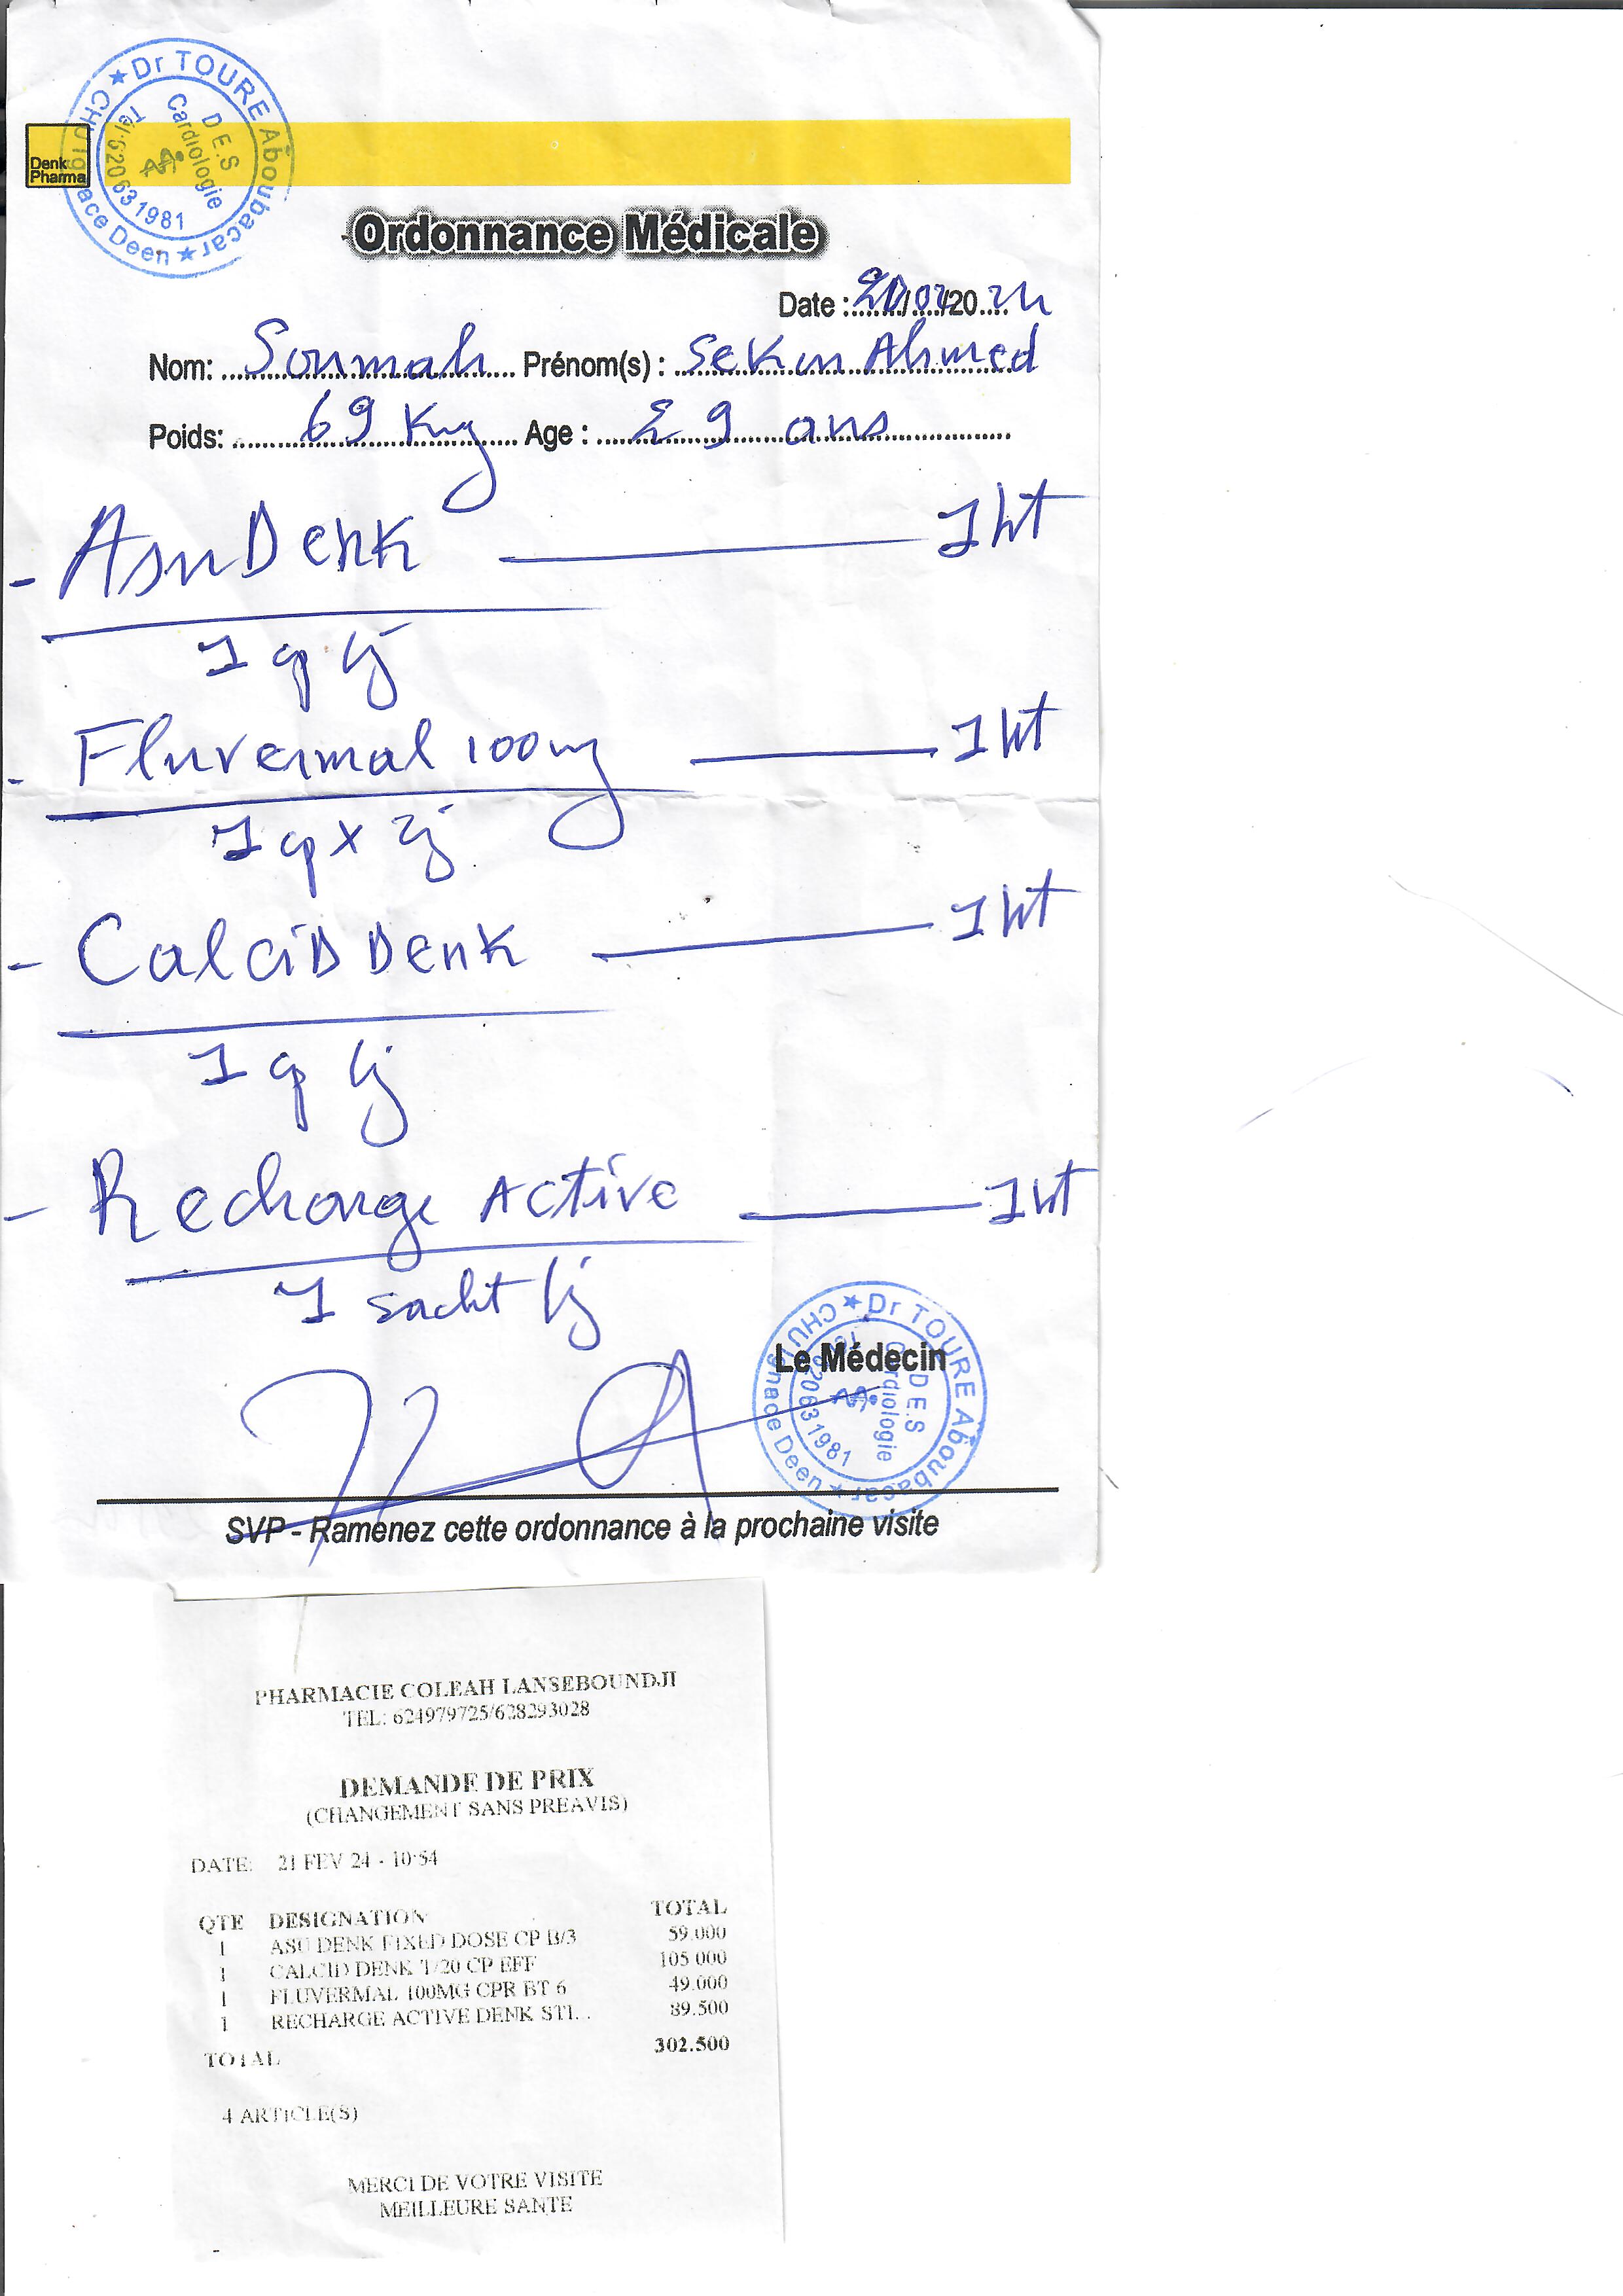 Dr TOURE Aboubacar
CHU Ignace Deen
D E.S
Cardiologie
Tel:620631981
Denk
Pharma
Ordonnance Médicale
Date : 20/02/2024
Nom: Soumah Prénom(s) : Sekou Ahmed
Poids: 69 Kg Age : 29 ans
- Asu Denk 1 bt
1 cp /j
- Fluvermal 100mg 1 bt
1 cp x 3j
- Calci D Denk 1 bt
1 cp /j
- Recharge Active 1 bt
1 sachet /j
Le Médecin
Dr TOURE Aboubacar
CHU Ignace Deen
D E.S
Cardiologie
620631981
SVP - Ramenez cette ordonnance à la prochaine visite
PHARMACIE COLEAH LANSEBOUNDJI
TEL: 624979725/628293028
DEMANDE DE PRIX
(CHANGEMENT SANS PREAVIS)
DATE: 21 FEV 24 - 10:54
QTE DESIGNATION TOTAL
1 ASU DENK FIXED DOSE CP B/3 59.000
1 CALCID DENK T/20 CP EFF 105 000
1 FLUVERMAL 100MG CPR BT 6 49.000
1 RECHARGE ACTIVE DENK STI. . 89.500
TOTAL 302.500
4 ARTICLE(S)
MERCI DE VOTRE VISITE
MEILLEURE SANTE